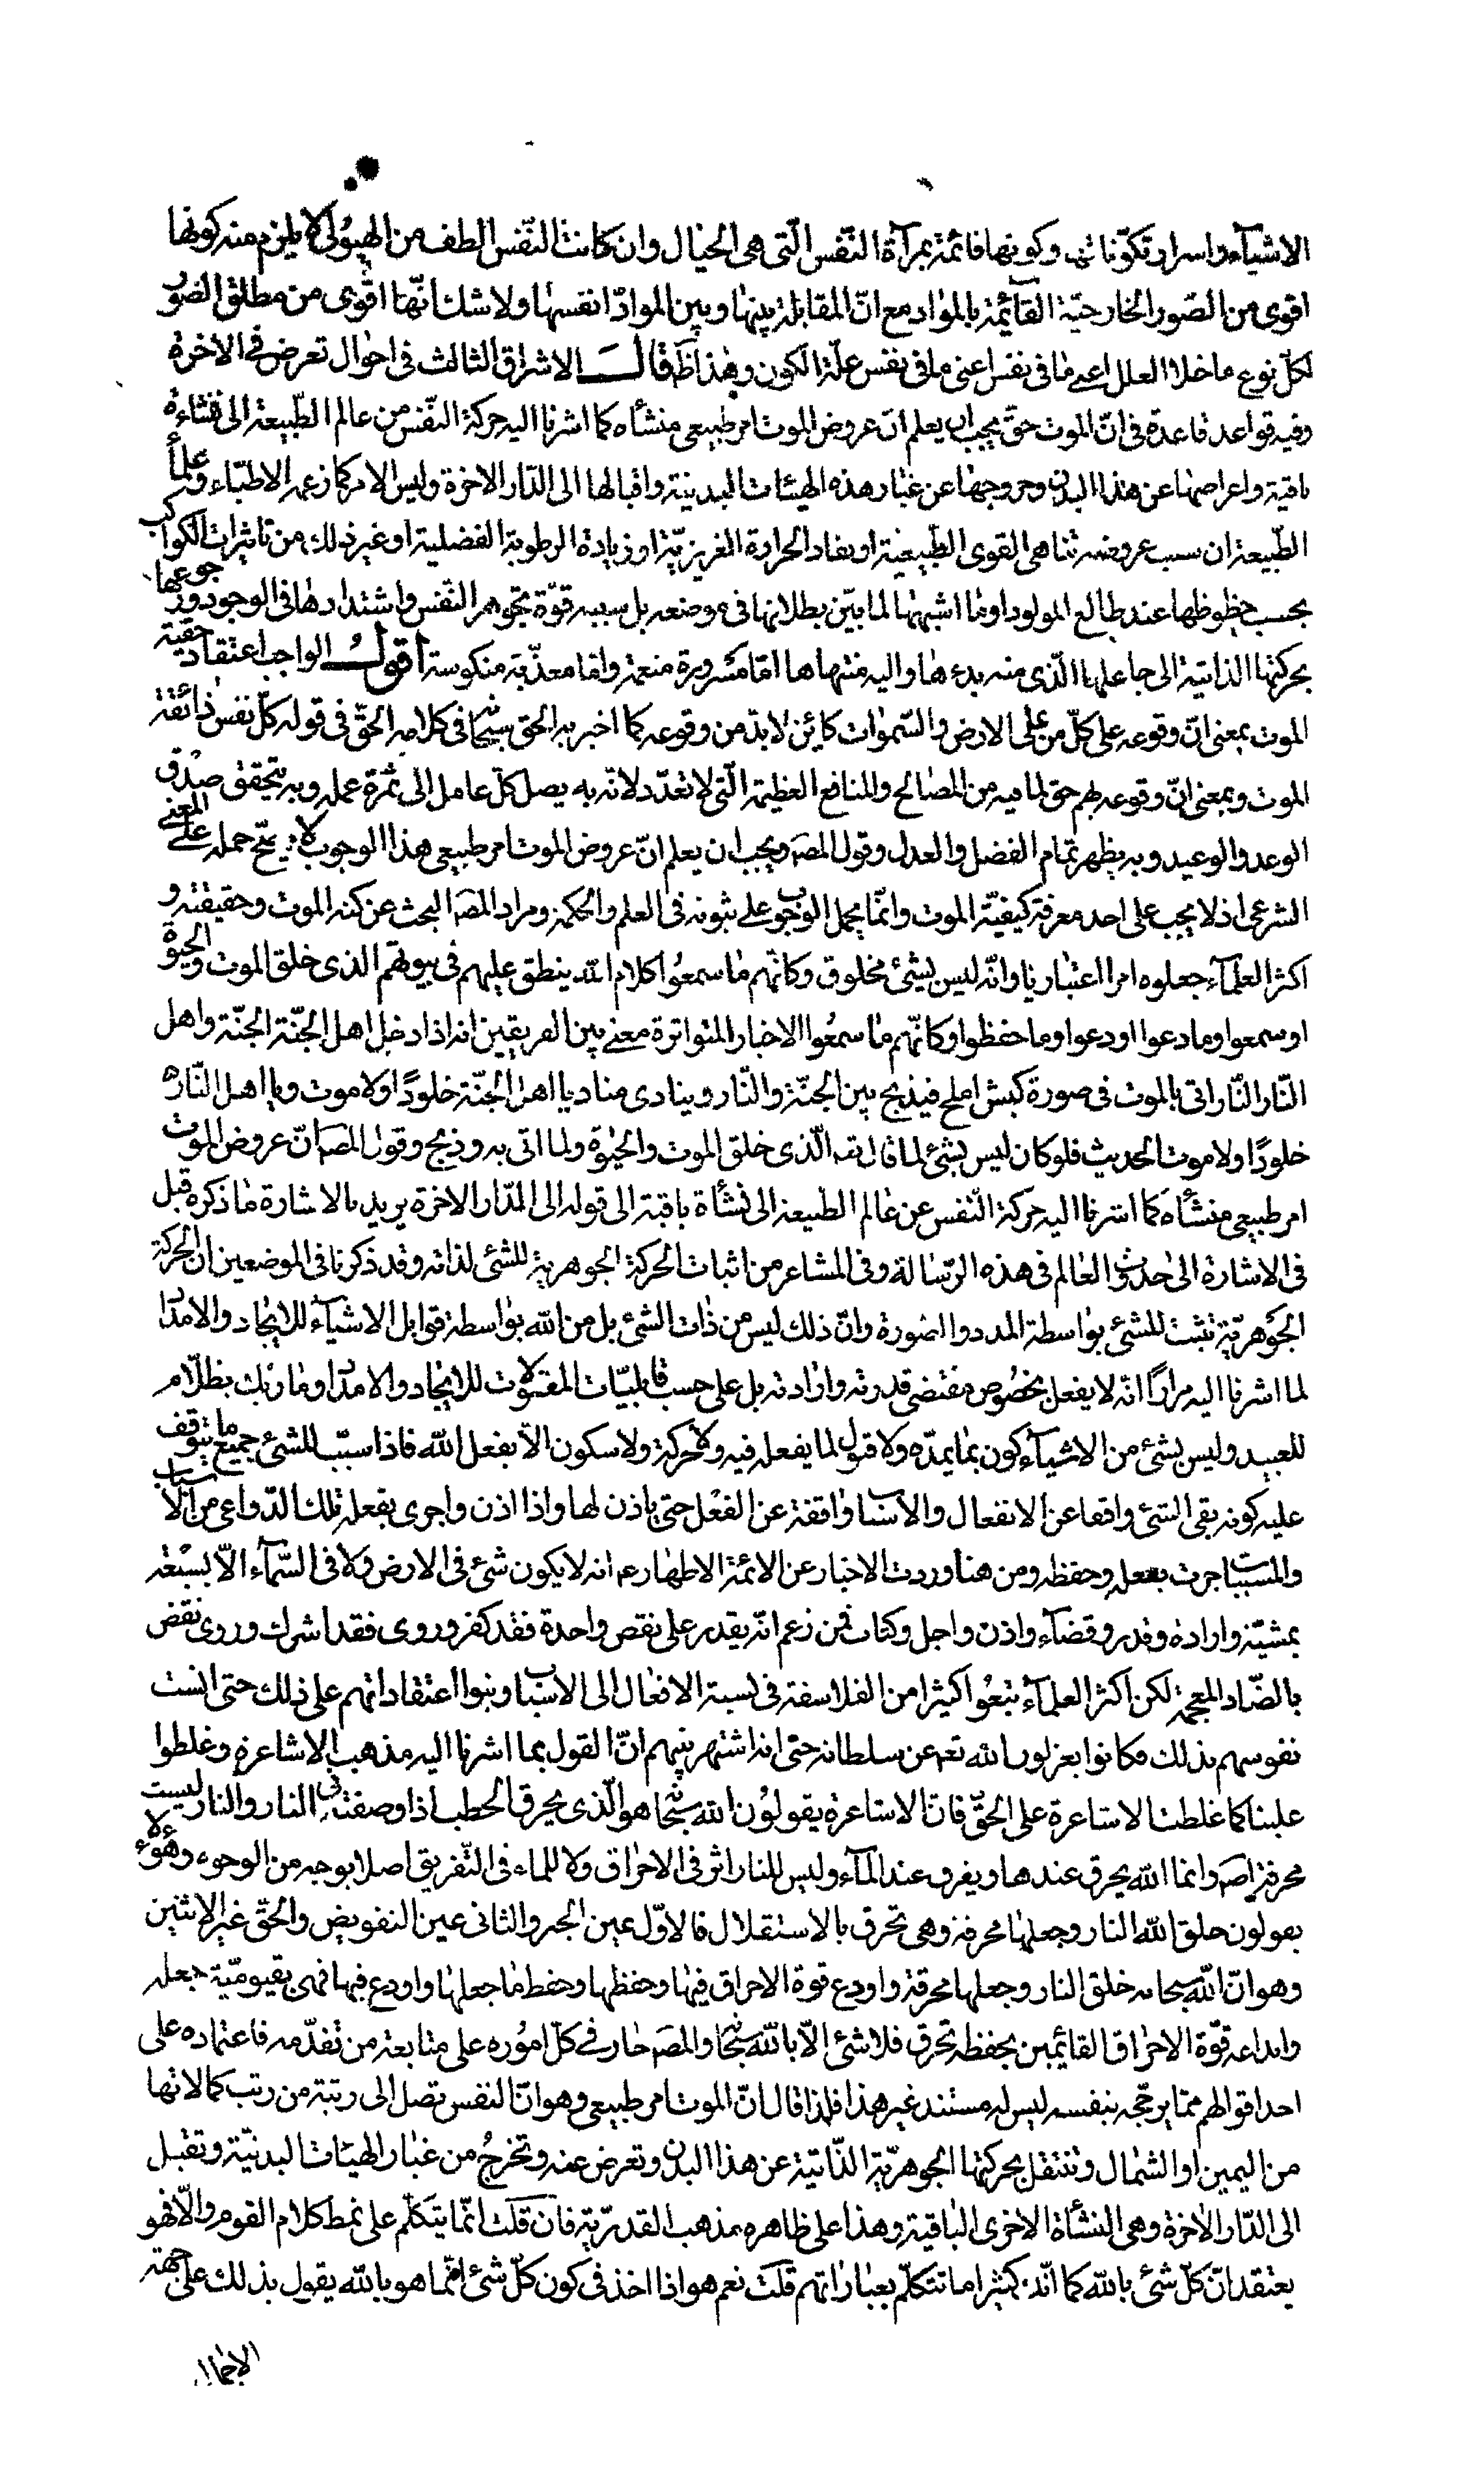 الاشيآء واسرار تكوّناتها وكونها قائمة بمرآة النّفس الّتى هى الخيال وان كانت النّفس الطف من الهيولى لا يلزم منه كونها
اقوى من الصّور الخارجيّة القآئمة بالموادّ مع انّ المقابلة بينها وبين الموادّ انفسها ولا شك انّها اقوى من مطلق الصّور
لكلّ نوع ما خلا العلل اعنى ما فى نفس اعنى ما فى نفس علّة الكون وهذا ظ قال الاشراق الثالث فى احوال تعرض فى الاخرة
وفيه قواعد قاعدة فى انّ الموت حقّ يجب ان يعلم انّ عروض الموت امر طبيعى منشأه كما اشرنا اليه حركة النّفس من عالم الطّبيعة الى نشاءة
باقية واعراضها عن هذا البدن وخروجها عن غبار هذه الهيئات البدنيّة واقبالها الى الدّار الاخرة وليس الامر كما زعمه الاطبّاء وعلمآء
الطّبيعة ان سبب عروضه تناهى القوى الطّبيعيّة او نفاد الحرارة الغريزيّة او زيادة الرطوبة الفضلية او غير ذلك من تاثيرات الكواكب
بحسب حظوظها عند طالع المولود او ما اشبهها لما بيّن بطلانها فى موضعه بل سببه قوّة تجوهر النّفس واشتدادها فى الوجود ورجوعها
بحركتها الذاتية الى جاعلها الّذى منه بدءها واليه منتهاها امّا مسرورة منعمة وامّا معذّبة منكوسة اقول الواجب اعتقاد حقية
الموت بمعنى انّ وقوعه على كلّ من على الارض والسّموات كاين لا بدّ من وقوعه كما اخبر به الحق سبحا فى كلامه الحقّ فى قوله كلّ نفس ذائقة
الموت وبمعنى انّ وقوعه بهم حق لما فيه من المصالح والمنافع العظيمة الّتى لا تعدّد لانّه به يصل كلّ عامل الى ثمرة عمله وبه يتحقق صدق
الوعد والوعيد وبه يظهر تمام الفضل والعدل وقول المصَ ويجب ان يعلم انّ عروض الموت امر طبيعى هذا الوجوب لا يتّجه حمله على المعنى
الشرعى اذ لا يجب على احد معرفة كيفيّة الموت وانّما يحمل الوجوب على ثبوته فى العلم والحكمة ومراد المصَ البحث عن كنه الموت وحقيقته و
اكثر العلمآء جعلوه امرا اعتباريا وانّه ليس بشئ مخلوق وكانّهم ما سمعوا كلام الله ينطق عليهم فى بيوتهم الذى خلق الموت والحيوة
او سمعوا وما دعوا او دعوا وما حفظوا وكانّهم ما سمعوا الاخبار المتواترة معنى بين الفريقين انه اذا دخل اهل الجنّة الجنّة واهل
النّار النّار اتى بالموت فى صورة كبش املح فيذبح بين الجنّة والنّار وينادى مناد يا اهل الجنّة خلودًا ولا موت ويا اهل النّار
خلودًا ولا موت الحديث فلو كان ليس بشئ لما قال تعه الّذى خلق الموت والحيوة ولما اتى به وذبح وقول المصَ انّ عروض الموت
امر طبيعى منشأه كما اشرنا اليه حركة النّفس عن عالم الطبيعة الى نشأة باقية الى قوله الى الدّار الاخرة يريد بالاشارة ما ذكره قبل
فى الاشارة الى حدوث العالم فى هذه الرّسالة وفى المشاعر من اثبات الحركة الجوهريّة للشئ لذاته وقد ذكرنا فى الموضعين ان الحركة
الجوهريّة تثبت للشئ بواسطة المدد والصّورة وانّ ذلك ليس من ذات الشئ بل من الله بواسطة قوابل الاشياء للايجاد والامداد
لما اشرنا اليه مرارًا انّه لا يفعل بخصوص مقتضى قدرته وارادته بل على حسب قابليّات المقبولات للايجاد والامداد وما ربّك بظلّام
للعبيد وليس بشئ من الاشيآء كون بما يمدّه ولا قبول لما يفعله فيه ولا حركة ولا سكون الاّ بفعل الله فاذا سبّب للشئ جميع ما يتوقف
عليه كونه بقى الشئ واقفا عن الانفعال والاسباب واقفة عن الفعل حتى ياذن لها واذا اذن واجرى بفعله تلك الدّواعى من الاسباب
والمسببات جرت بفعله وحفظه ومن هنا وردت الاخبار عن الائمّة الاطهار عم انه لا يكون شئ فى الارض ولا فى السّمآء الاّ بسبعة
بمشيّة وارادة وقدر وقضآء واذن واجل وكتاب فمن زعم انّه يقدر على نقص واحدة فقد كفر وروى فقد اشرك وروى نقض
بالضّاد المعجمة لكن اكثر العلمآء تبعوا كثيرا من الفلاسفة فى نسبة الافعال الى الاسباب وبنوا اعتقاداتهم على ذلك حتى انست
نفوسهم بذلك فكانوا يعزلون الله تعه عن سلطانه حتى انه اشتهر بينهم انّ القول بما اشرنا اليه مذهب الاشاعرة وغلطوا
علينا كما غلطت الاشاعرة على الحقّ فانّ الاشاعرة يقولون الله سبحا هو الّذى يحرق الحطب اذا وضعته فى النار والنار ليست
محرقة اصَه وانما الله يحرق عندها ويغرق عند المآء وليس للنار اثر فى الاحراق ولا للماء فى التّفريق اصلا بوجه من الوجوه وهؤلاء
يقولون خلق الله النار وجعلها محرقة وهى تحرق بالاستقلال فالاوّل عين الجبر والثانى عين التفويض والحقّ غير الاثنين
وهو انّ الله سبحانه خلق النار وجعلها محرقة واودع قوة الاحراق فيها وحفظها وحفظ ما جعلها واودع فيها فهى بقيوميّة جعله
وايداعه قوّة الاحراق القائمين بحفظه تحرق فلا شئ الاّ بالله سبحا والمصَ جار فى كلّ اموره على متابعة من تقدّمه فاعتماده على
احد اقوالهم ممّا يرجّحه بنفسه ليس له مستند غير هذا فلذا قال انّ الموت امر طبيعى وهو انّ النفس تصل الى رتبة من رتب كمالاتها
من اليمين او الشمال وتنتقل بحركتها الجوهريّة الذّاتية عن هذا البدن وتعرض عنه وتخرج من غبار الهيئات البدنيّة وتقبل
الى الدّار الاخرة وهى النشأة الاخرى الباقية وهذا على ظاهره مذهب القدريّة فان قلت انّما يتكلّم على نمط كلام القوم والاّ فهو
يعتقد انّ كلّ شئ بالله كما انّك كثيرا ما تتكلّم بعباراتهم قلت نعم هو اذا اخذ فى كون كلّ شئ انّما هو بالله يقول بذلك على جهة
الاجمال